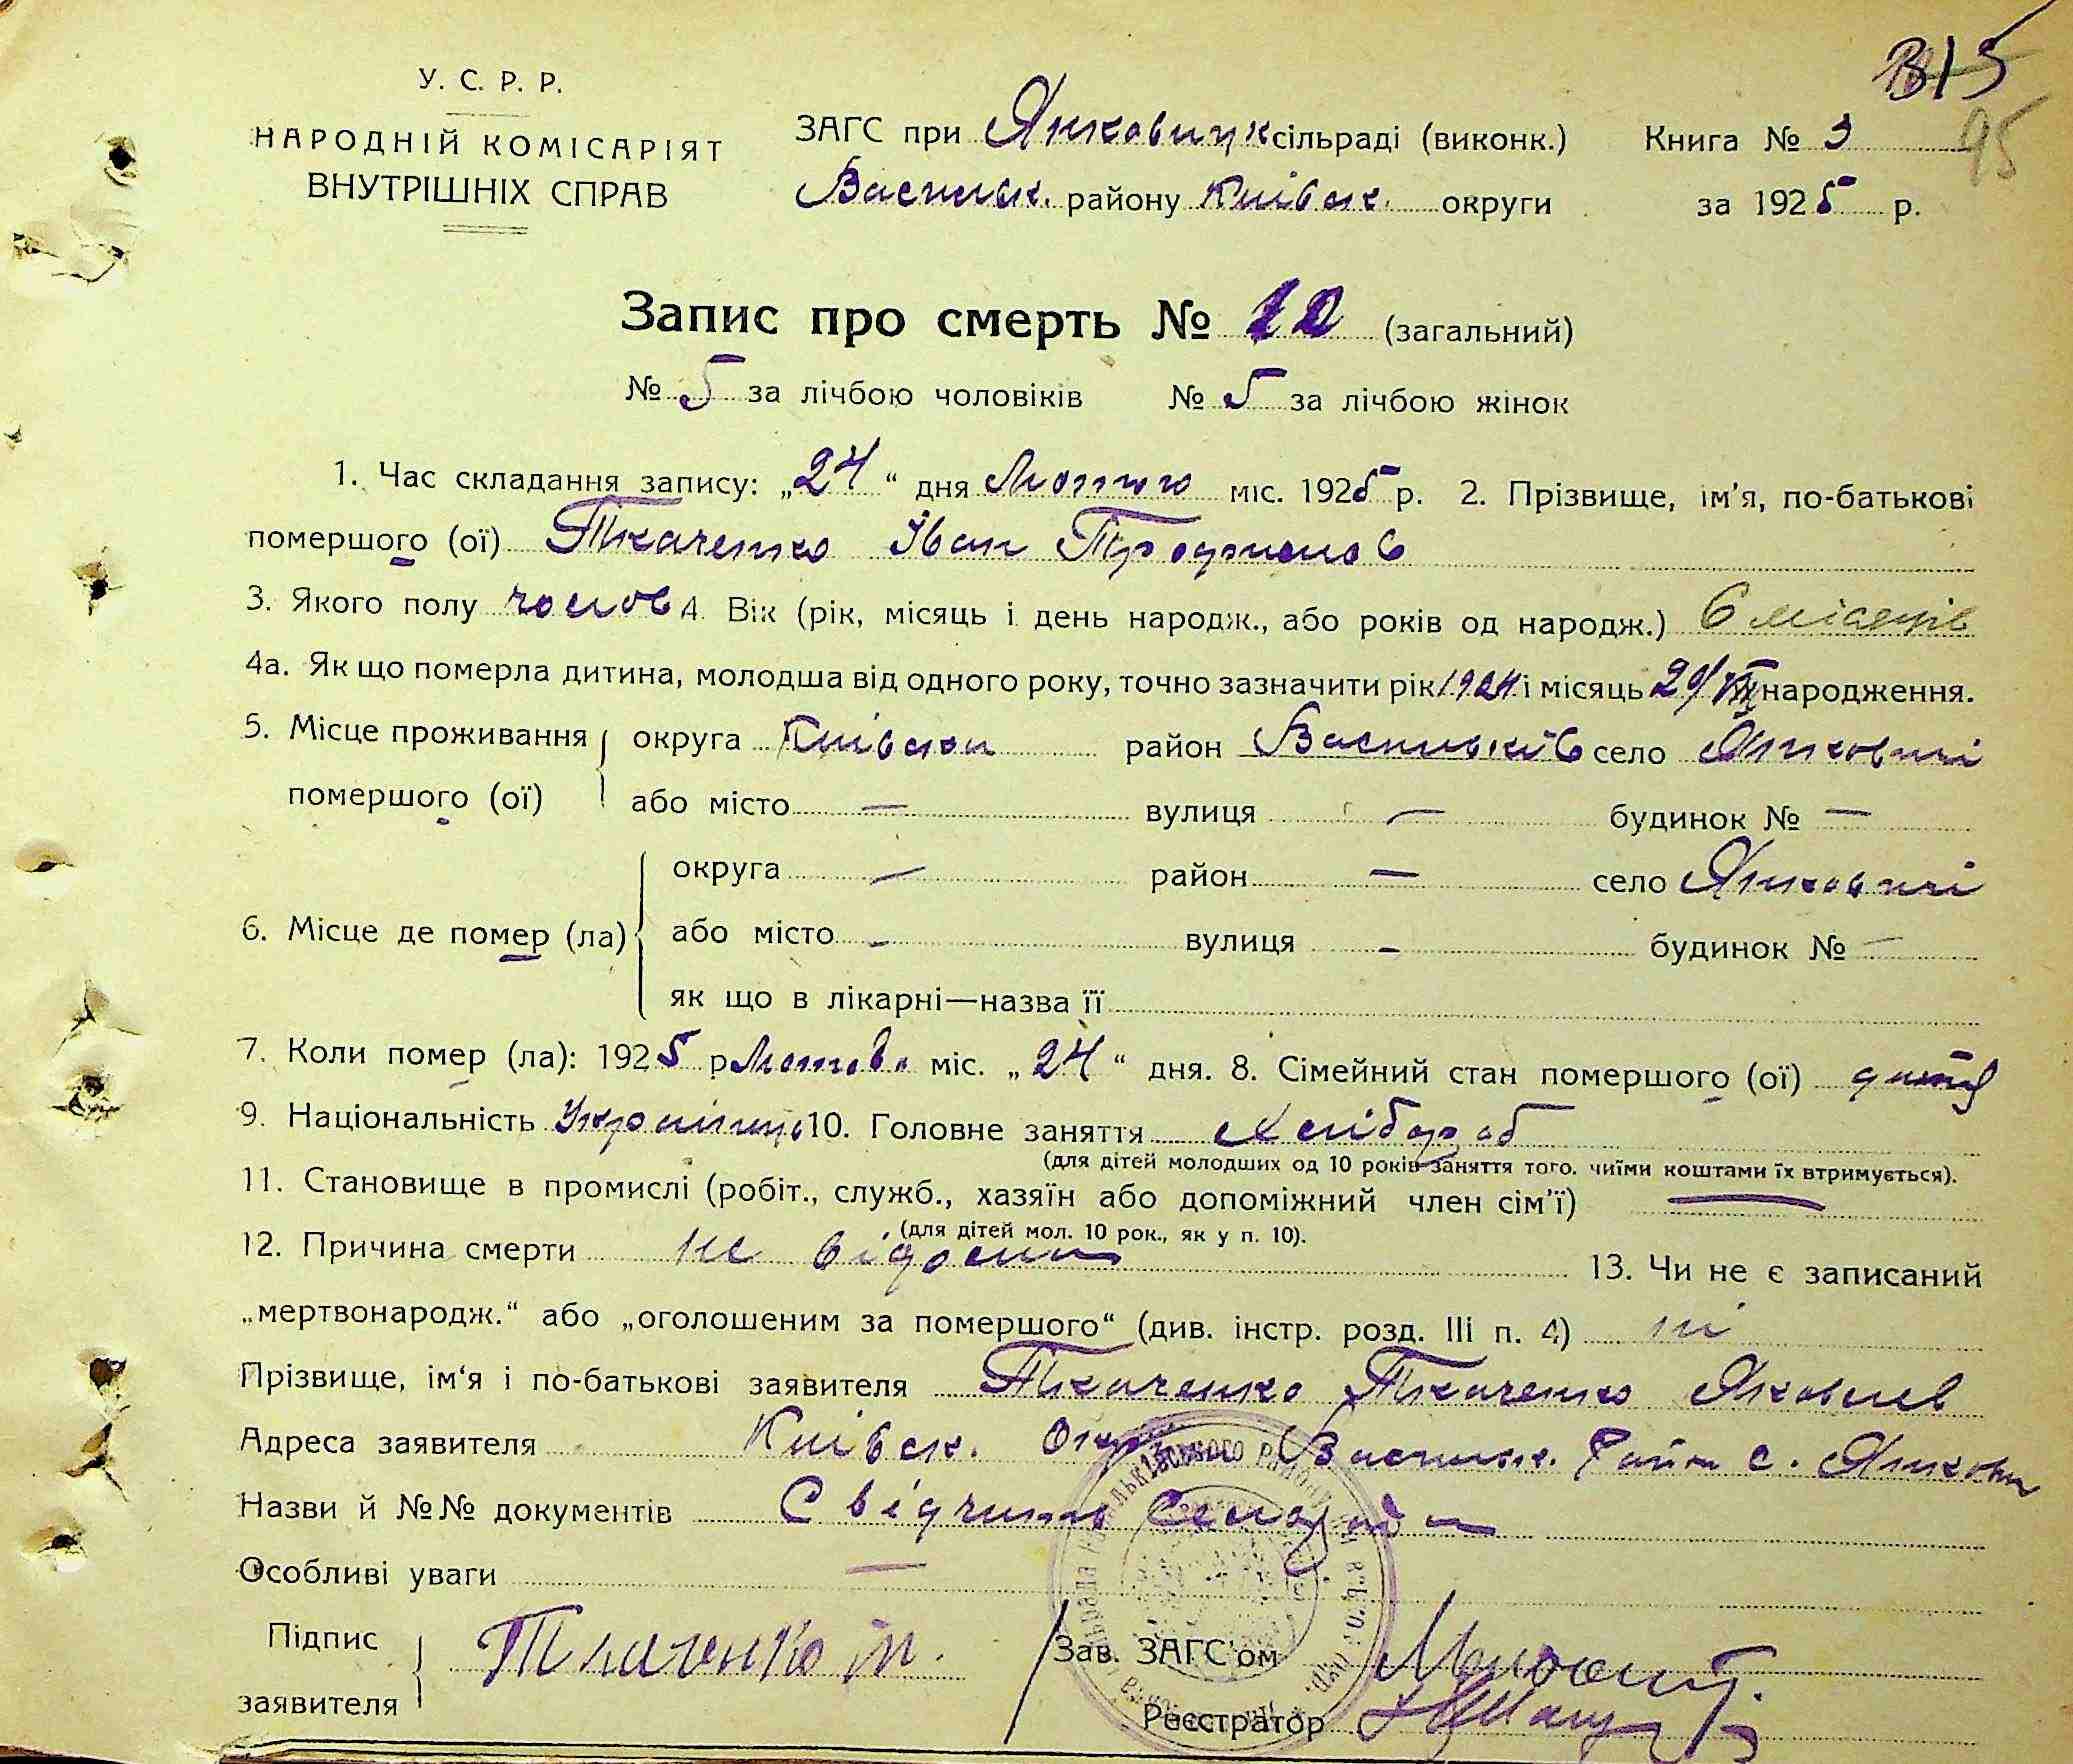 315
95
У. С. Р. Р.
НАРОДНІЙ КОМІСАРІЯТ
ВНУТРІШНІХ СПРАВ
ЗАГС при Янковицк сільраді (виконк.)
Васильк. району Київск. округи
Книга № 3
за 1925 р.
Запис про смерть № 10 (загальний)
№ 5 за лічбою чоловіків № 5 за лічбою жінок
1. Час складання запису: „24“ дня Лютого міс. 1925 р. 2. Прізвище, ім'я, по-батькові
помершого (ої) Ткаченко Іван Трофимов
3. Якого полу чолов 4. Вік (рік, місяць і день народж., або років од народж.) 6 місяців
4а. Як що померла дитина, молодша від одного року, точно зазначити рік 1924 і місяць народження.
5. Місце проживання округа Київськ район Васильків село Янковичі
помершого (ої) або місто — вулиця — будинок № —
округа — район — село Янковичі
6. Місце де помер (ла) або місто - вулиця - будинок № —
як що в лікарні—назва її
7. Коли помер (ла): 1925 р Лютого міс. „24“ дня. 8. Сімейний стан помершого (ої) дитя
9. Національність Українець 10. Головне заняття Хлібороб
(для дітей молодших од 10 років заняття того. чиїми коштами їх втримується).
11. Становище в промислі (робіт., служб., хазяїн або допоміжний член сім'ї) —
(для дітей мол. 10 рок., як у п. 10).
12. Причина смерти не відома 13. Чи не є записаний
„мертвонародж.“ або „оголошеним за помершого“ (див. інстр. розд. III п. 4) ні
Прізвище, ім'я і по-батькові заявителя Ткаченко Ткаченко Яковлев
Адреса заявителя Київск. Окр Васильк. Район с. Янкович
Назви й №№ документів Свідчить Сельрада
Особливі уваги —
Підпис
заявителя
Ткаченко Т.
Зав. ЗАГС'ом
Реєстратор